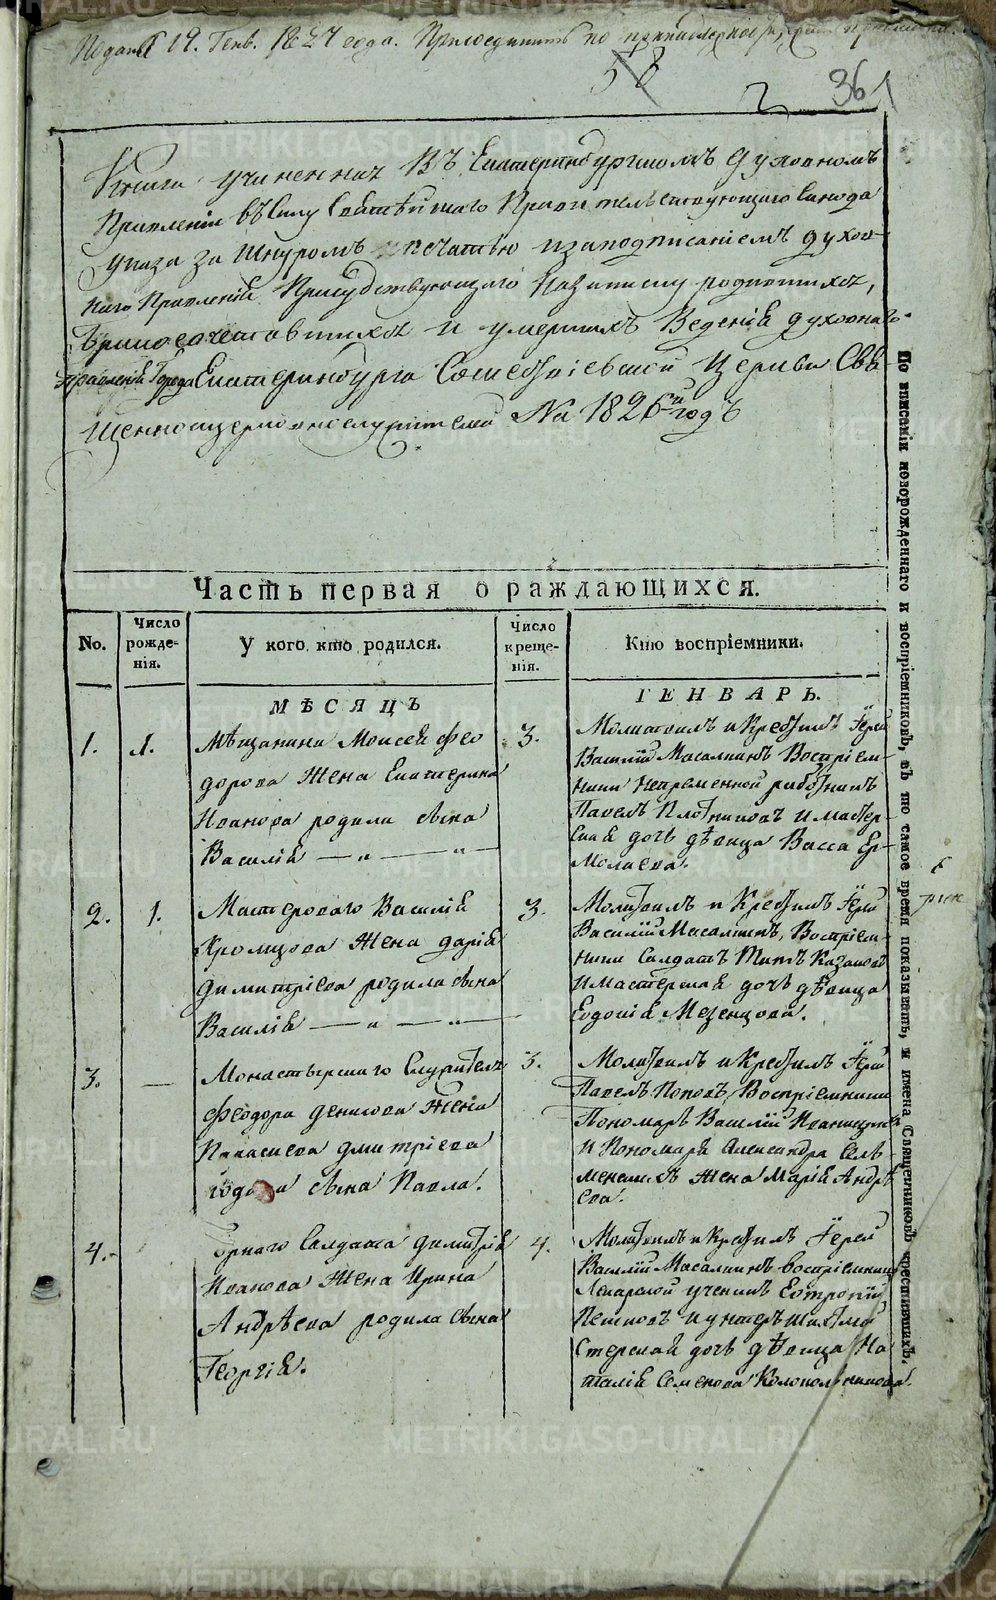 Поданъ 19. Генв. 1827 года. Приобщить по
58
2
361
Книга учиненная Въ Екатеринбургскомъ духовномъ
Правленіи въ силу Святѣйшаго Правительствующаго Синода
указа за шнуромъ и печатью и заподписаніемъ духов-
наго Правленія Присудствующаго На записку родившихся,
бракосочетавшихся и умершихъ Веденія духовнаго
правленія Города Екатеринбурга Церкви Свя-
щенноцерковнослужителями На 1826й годъ
Часть первая о раждающихся.
No.
Число рожде- нія.
У кого кто родился.
Число креще- нія.
Кто воспріемники.
МѢСЯЦЪ
ГЕНВАРЬ.
1.
1.
Мѣщанина Моисея Фео
дорова Жена Екатерина
Иванова родила сына
Василія — „ — „ —
3.
Молитвилъ и Крестилъ Іерей
Василій Масалкинъ Воспріем-
ники Непременной работникъ
Павелъ Плотниковъ и мастер-
ская дочь дѣвица Васса Ер-
молаева.
2.
1.
Мастероваго Василія
Кромцова Жена дарія
димитріева родила сына
Василія — „ — „ —
3.
Молитвилъ и Крестилъ Іерей
Василій Масалкинъ, Воспріем-
ники Салдатъ Титъ Казаковъ
и мастерская дочь дѣвица
Евдокія Мезенцова.
3.
—
Монастырскаго Служителя
Феодора денисова Жена
дмитріева
сына Павла.
3.
Молитвилъ и Крестилъ Іерей
Павелъ Поповъ, Воспріемники
Пономарь Василій
и Пономаря Александра Селв-
менскихъ Жена Марія Андрѣ
ева.
4.
Горнаго Салдата димитрія
Иванова Жена Ирина
Андрѣева родила сына
Георгія.
4.
Молитвилъ и Крестилъ Іерей
Василій Масалкинъ воспріемники
Лекарской ученикъ Евтропій
Пешковъ и унтеръ
стерская дочь дѣвица На
талія Семенова Колокольникова.
По вписаніи новорожденнаго и воспріемниковъ, въ то самое время показывать, и имена Священниковъ крестившихъ.
METRIKI.GASO-URAL.RU